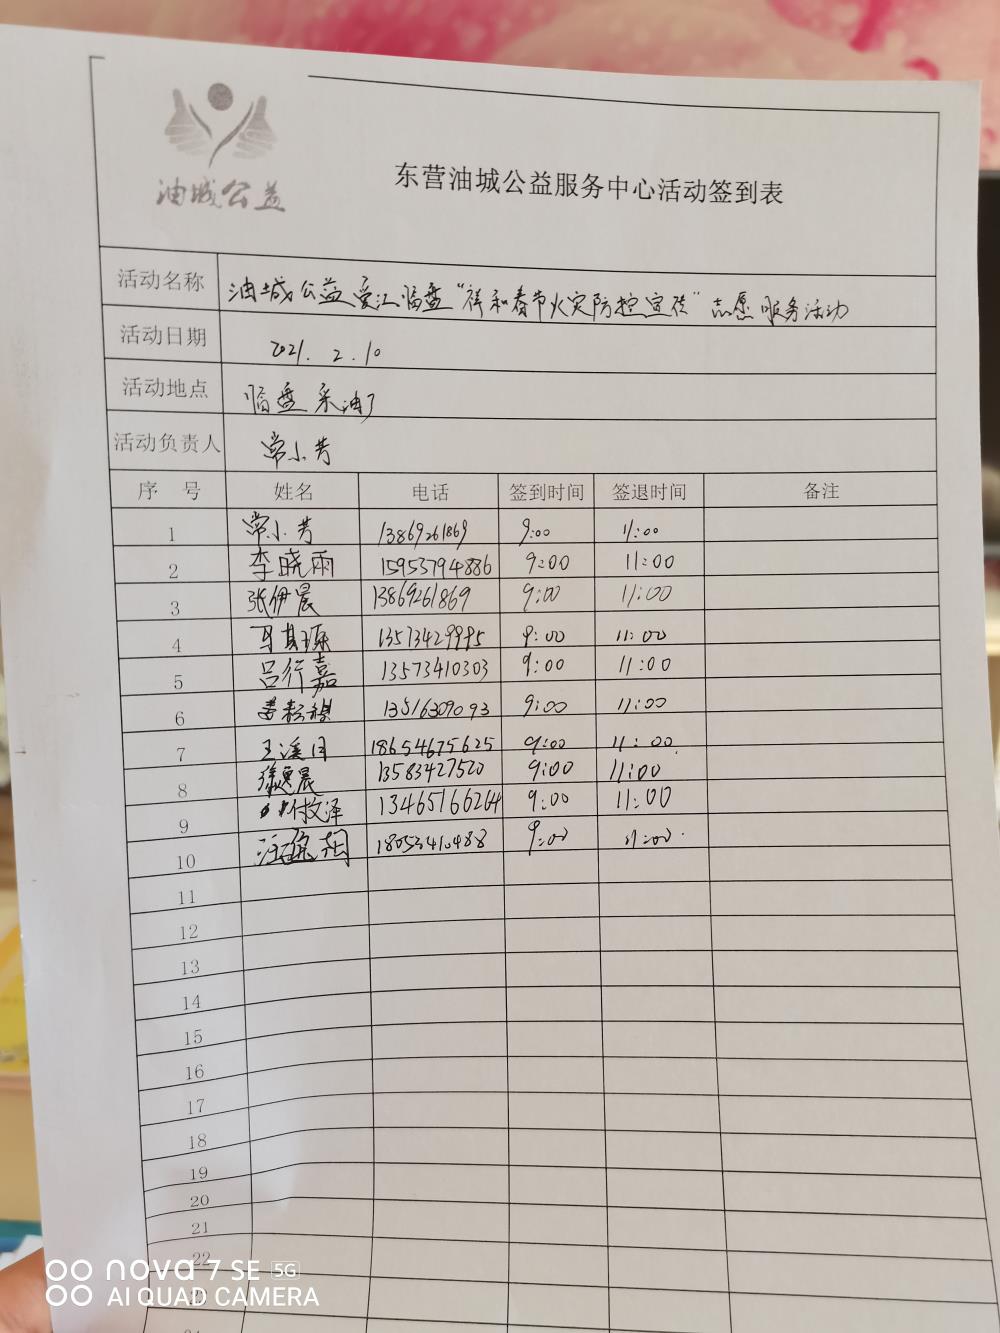 油城公益
东营油城公益服务中心活动签到表
活动名称 油城公益爱心临盘“祥和春节火灾防控宣传”志愿服务活动
活动日期 2021.2.10
活动地点 临盘采油厂
活动负责人 常小芳
序 号 姓名 电话 签到时间 签退时间 备注
1 常小芳 13869261869 9:00 11:00
2 李晓雨 15953794886 9:00 11:00
3 张伊晨 13869261869 9:00 11:00
4 13573429995 9:00 11:00
5 吕行嘉 13573410303 9:00 11:00
6 13516309093 9:00 11:00
7 王溪月 18654675625 9:00 11:00
8 徐惠晨 13583427520 9:00 11:00
9 付文泽 13465166264 9:00 11:00
10 18053410488 9:00 11:00
11
12
13
14
15
16
17
18
19
20
21
22
23
nova 7 SE 5G
AI QUAD CAMERA